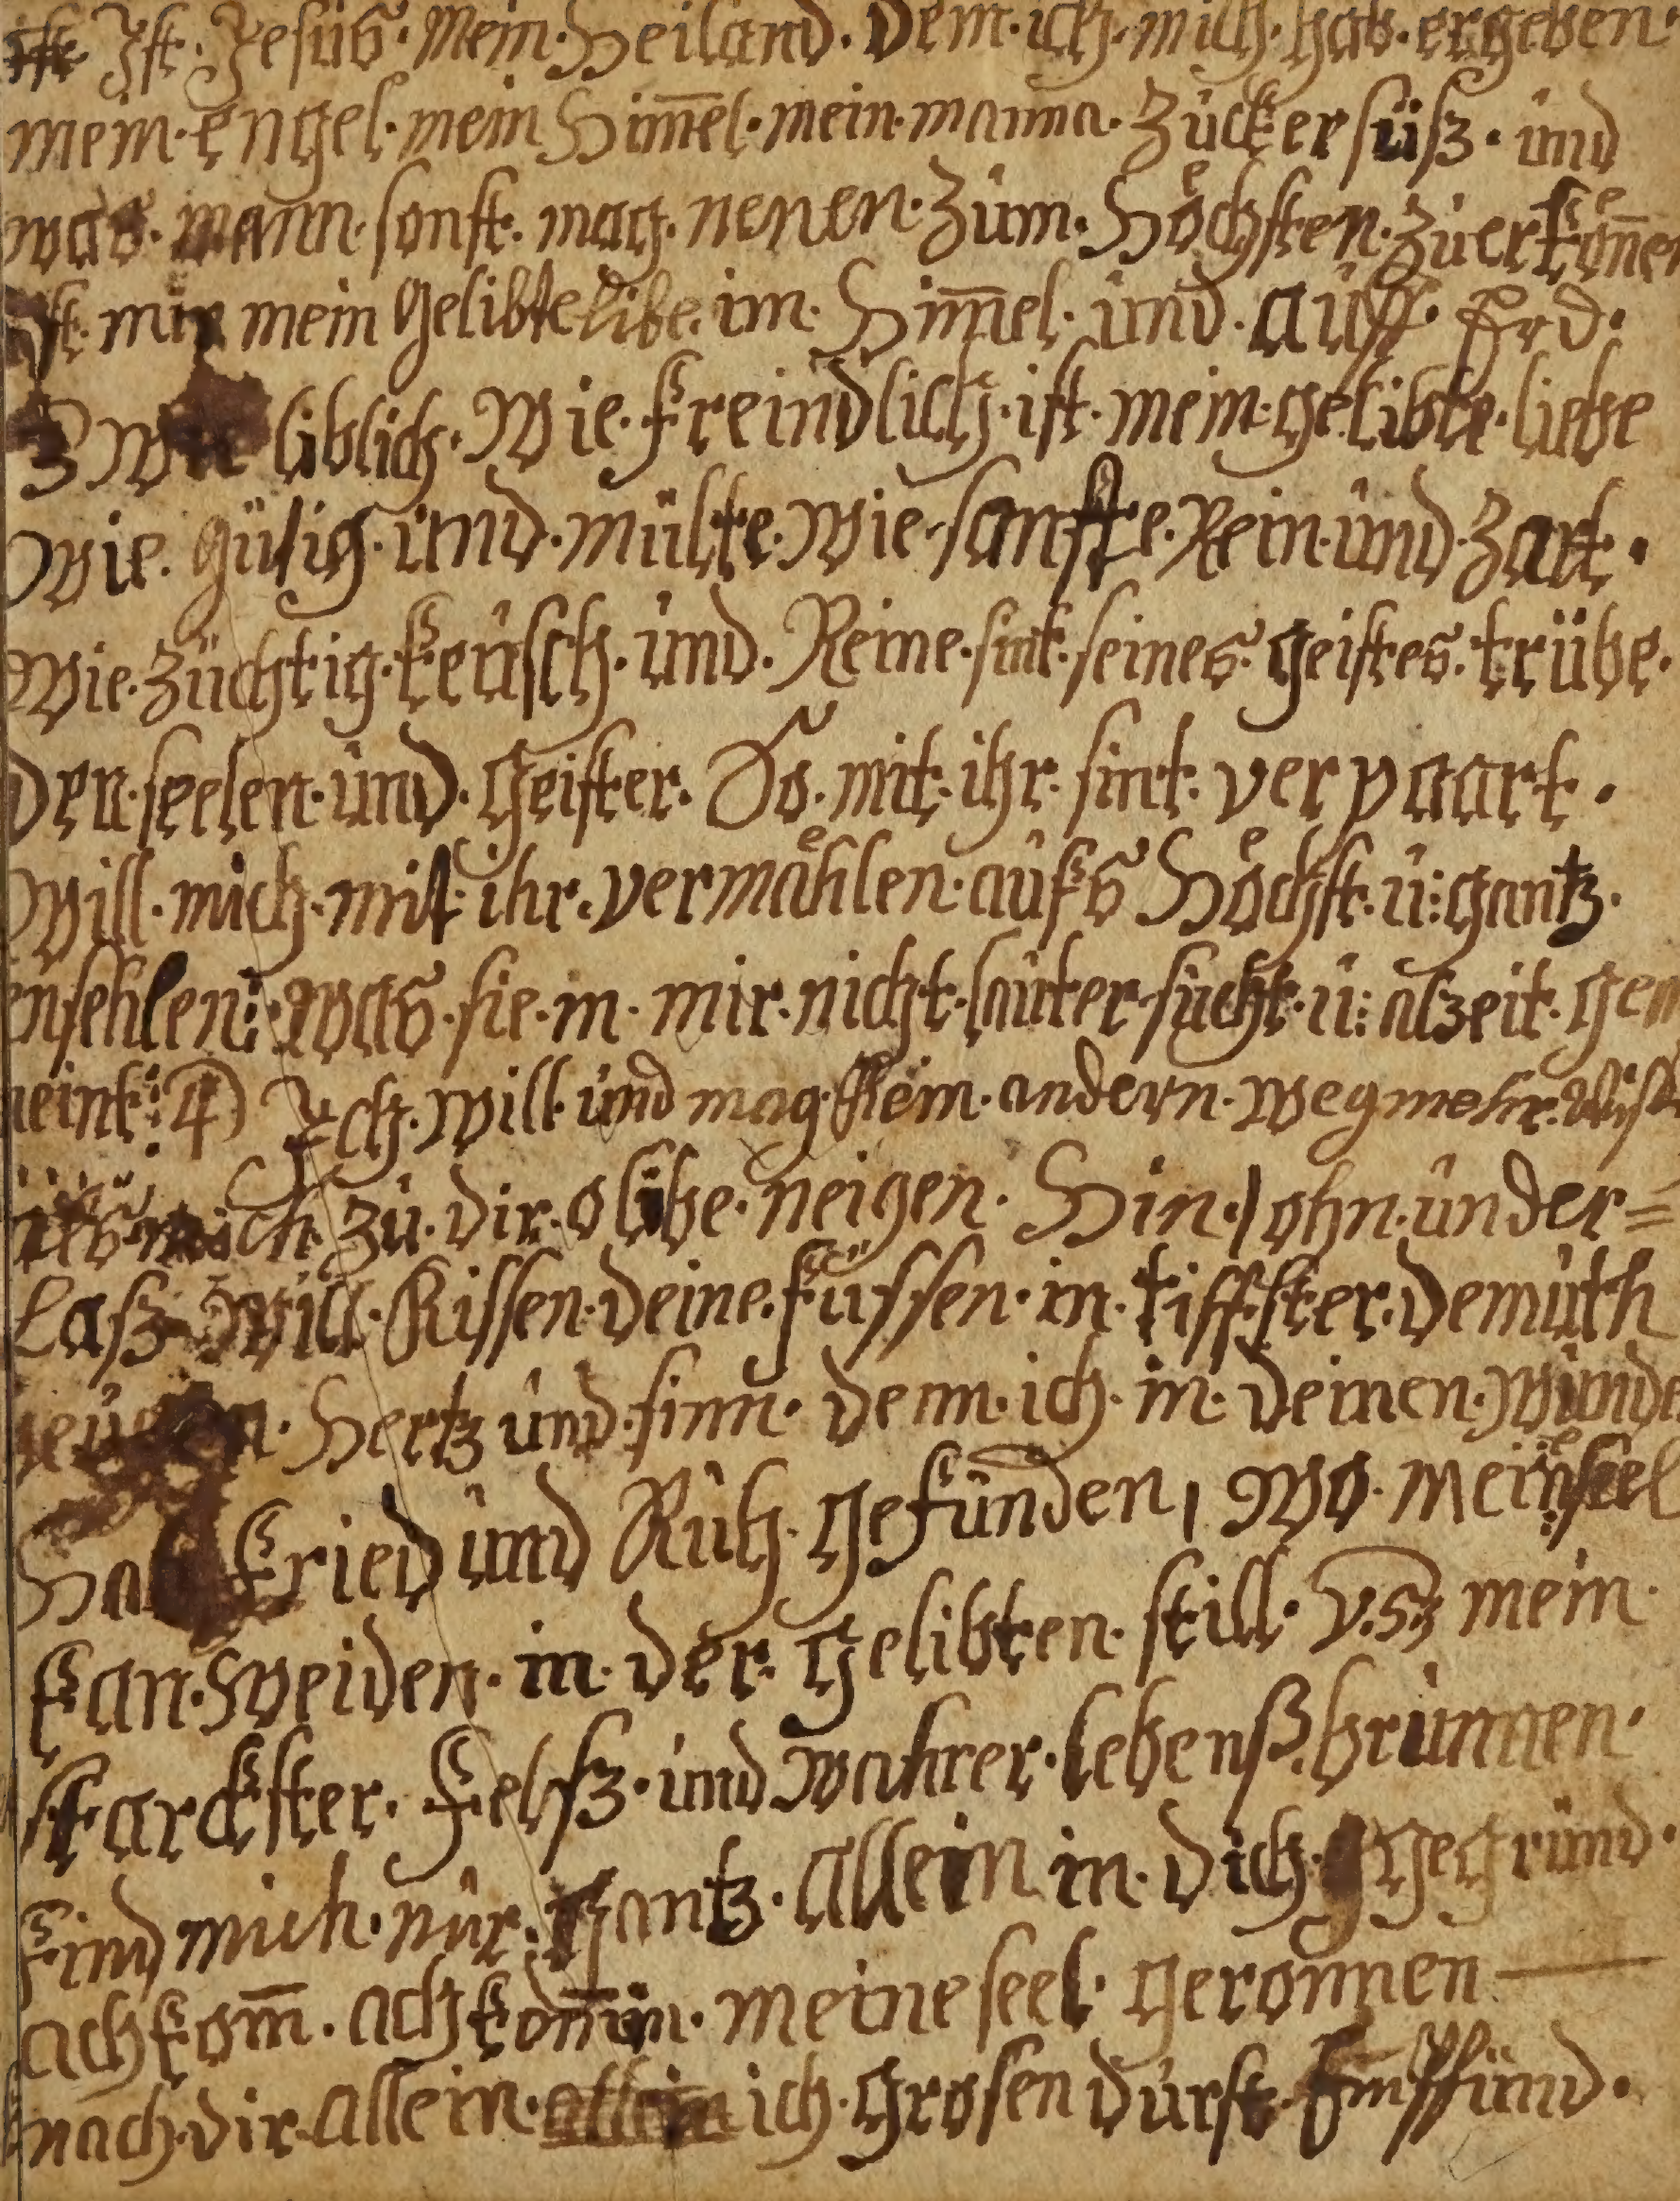 Ist. Jesus. Mein. Heiland. Dem. ich. mich. hab. ergeben.
mein. Engel. mein Him̅el. mein. manna. Zücker süß. und
was. mann. sonst. mag. nenen. Züm. Höchsten. Zü erkön̅en
ist. mir mein Gelibte libe. im. Him̅el. und. aüff. Erd.
3 Wie liblich. Wie. freindlich. ist. mein. gelibte. liebe
Wie. gütig. und. mülte. Wie. sanfte. Rein. und. Zart.
Wie. Züchtig. keüsch. und. Reine. sint. seines. geistes. trübe.
Der. seelen. und. geister. So. mit. ihr. sint. ver paart.
Will. mich. mit. ihr. vermählen. aufs Höchst. ü: gantz.
enfehlen: Was. sie. in. mir. nicht. lauter. sücht. ü: alzeit. gem
meint: 4) Ich. Will. und mag. Kein. andern. Weg mehr.
mich zü. dir. o libe. neigen. Hin. ohn. under=
Laß Will. Kissen. deine. füssen. in. tiffster. demüth
Hertz und. sinn. denn. ich. in. deinen. Wunde
Hab fried und Ruh. gefünden, Wo. mein seel
kan. Weiden. in. der. gelibten. still. V. 5 mein.
starckster. Felß. und Wahrer. lebenß. brünnen.
find mich. nur. gantz. allein in. dich. gegründ.
ach kom̅. ach kom̅ in. meine seel. geronnen —
nach. dir. allein. ich. grosen dürst. Empfünd.